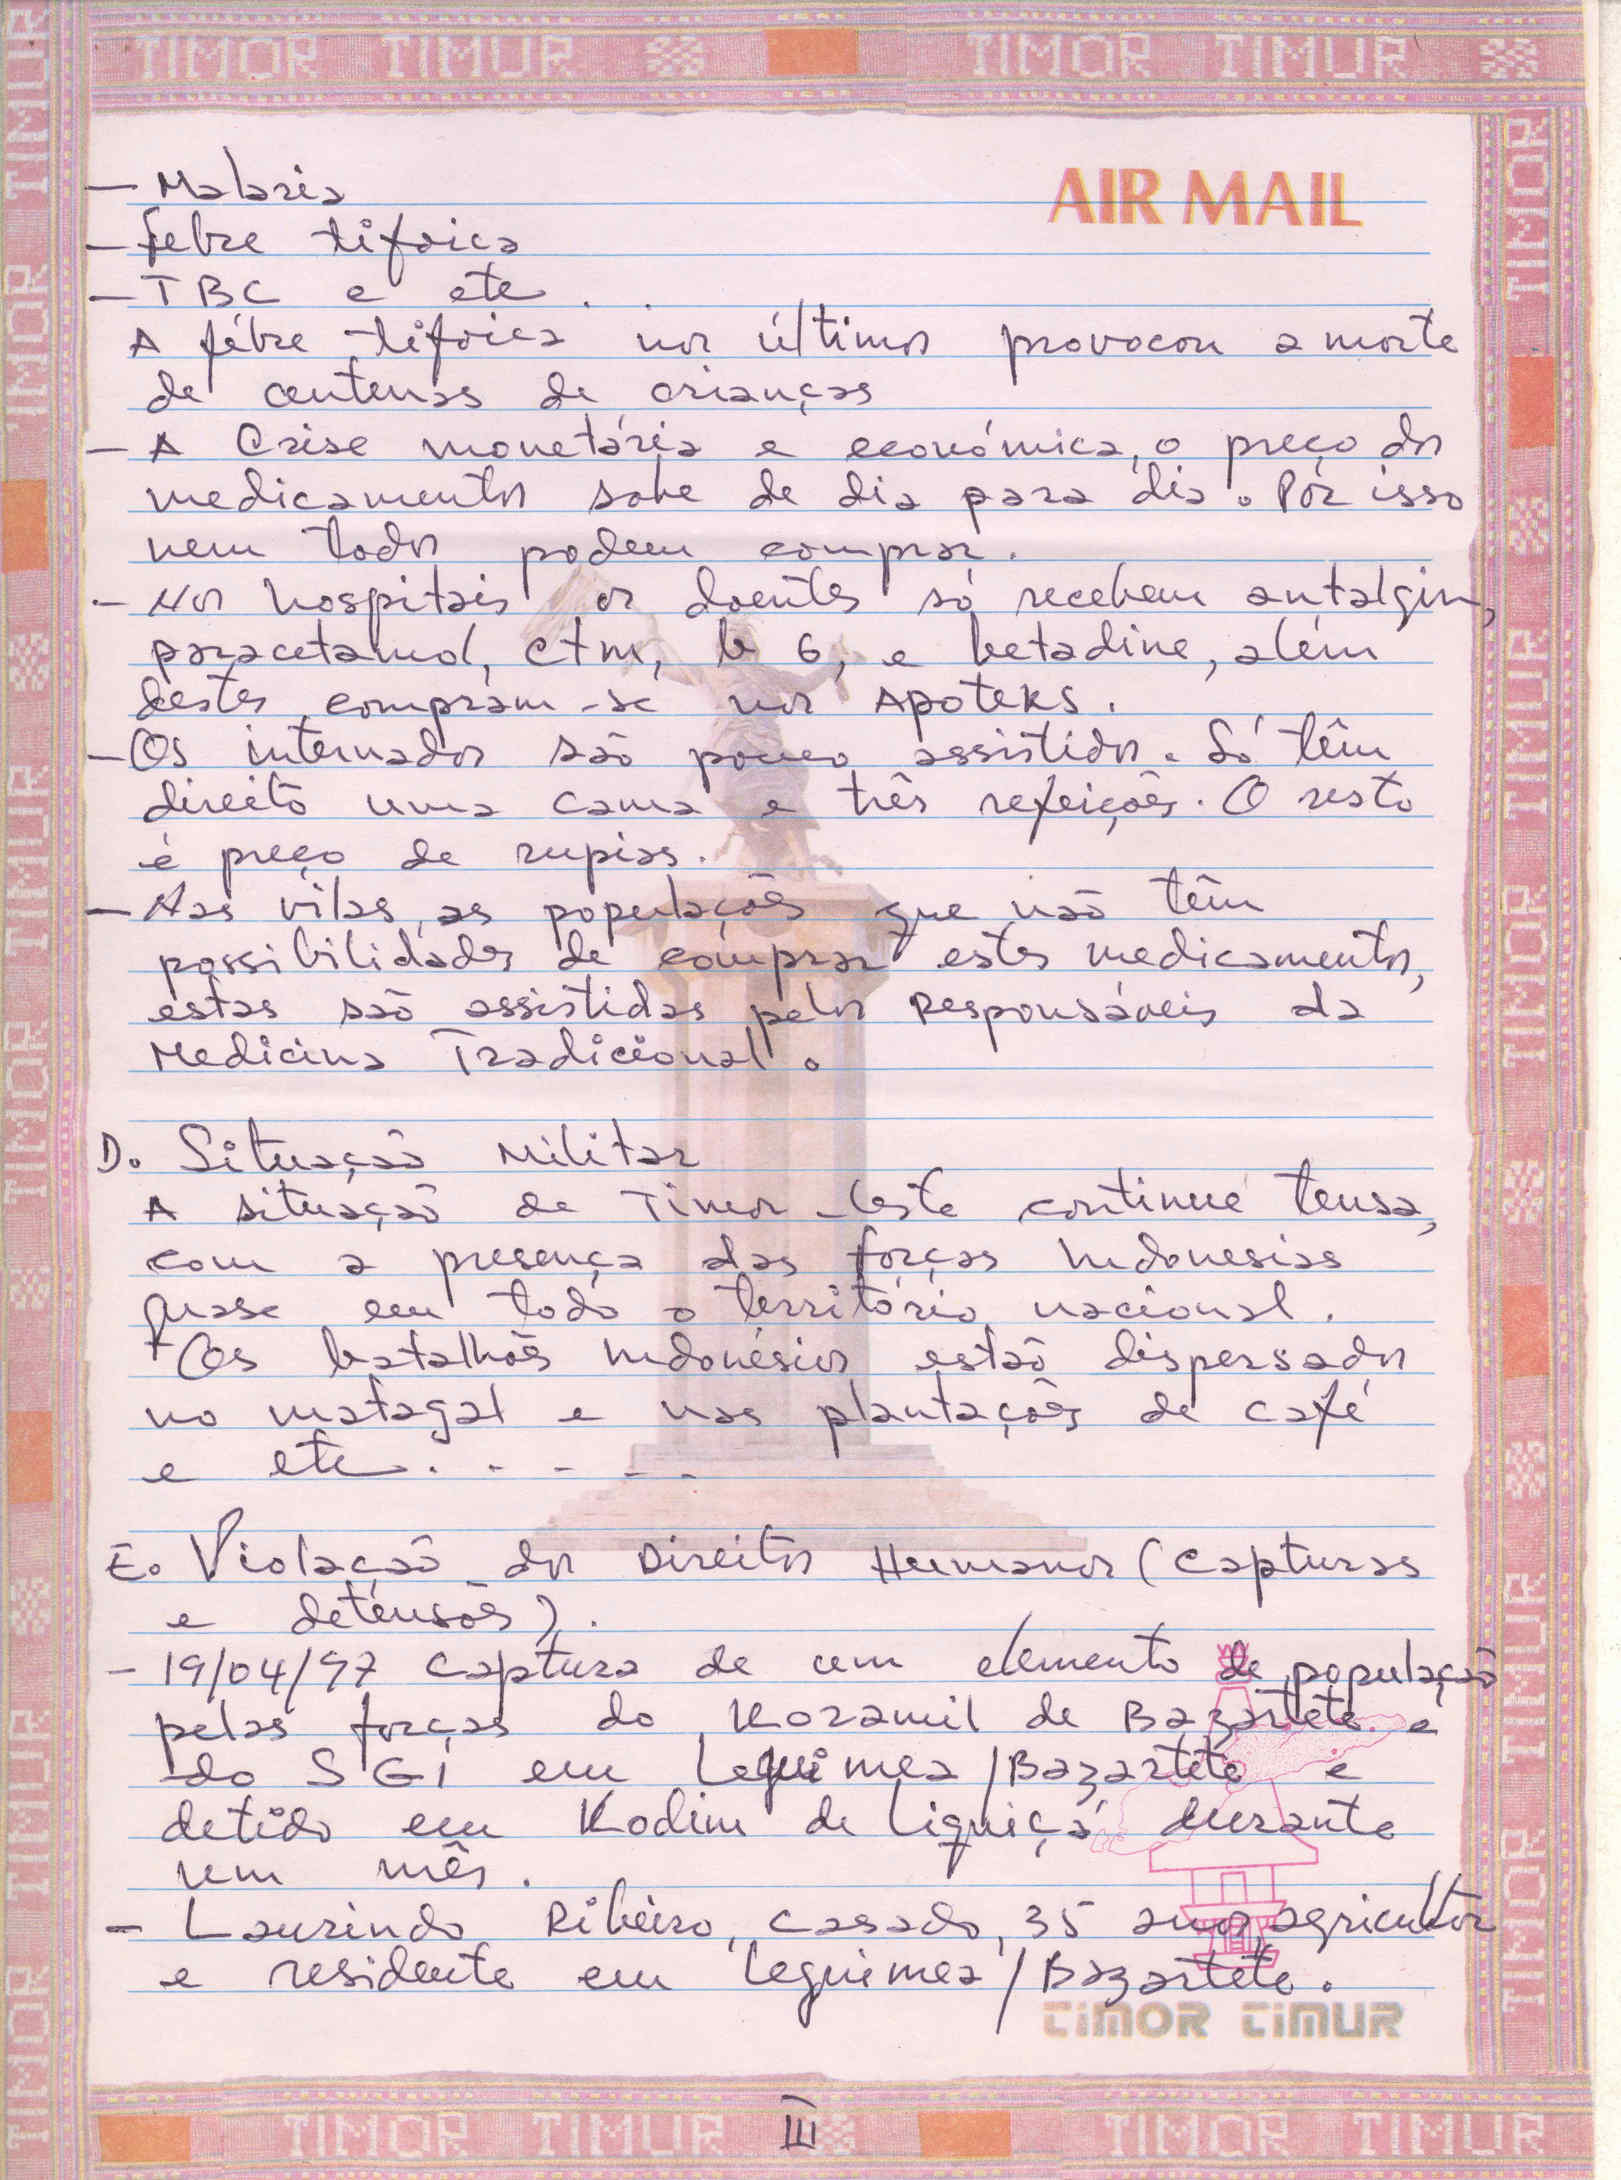 TIMOR TIMUR TIMOR TIMUR
AIR MAIL
- Malaria
- febre tifoica
- TBC e etc.
A fébre tifoica nos últimos provocou a morte
de centenas de crianças
- A Crise monetária e económica, o preço dos
medicamentos sobe de dia para dia. Pór isso
nem todos podem comprar.
- Nos hospitais os doentes só recebem antalgin,
paracetamol, ctm, b 6, e betadine, além
destes compram-se nos Apoteks.
- Os internados são pouco assistidos. Só têm
direito uma cama e três refeições. O resto
é preço de rupias.
- Nas vilas, as populações que não têm
possibilidades de comprar estes medicamentos,
estas são assistidas pelos Responsáveis da
Medicina Tradicional.
D. Situação Militar
A situação de Timor-Leste continue tensa,
com a presença das forças Indonesias
quase em todo o território nacional.
+ Os batalhões Indonésios estão dispersados
no matagal e nas plantações de café
e etc. . - - - -
E. Violação dos Direitos Humanos (Capturas
e detensões).
- 19/04/97 Captura de um elemento de população
pelas forças do Koramil de Bazartete e
do SGI em Lequimea/Bazartete e
detido em Kodim de Liquiçá durante
um mês.
- Laurindo Ribeiro, casado, 35 anos, agricultor
e residente em Lequimea/Bazartete.
TIMOR TIMUR
III
TIMOR TIMUR TIMOR TIMUR